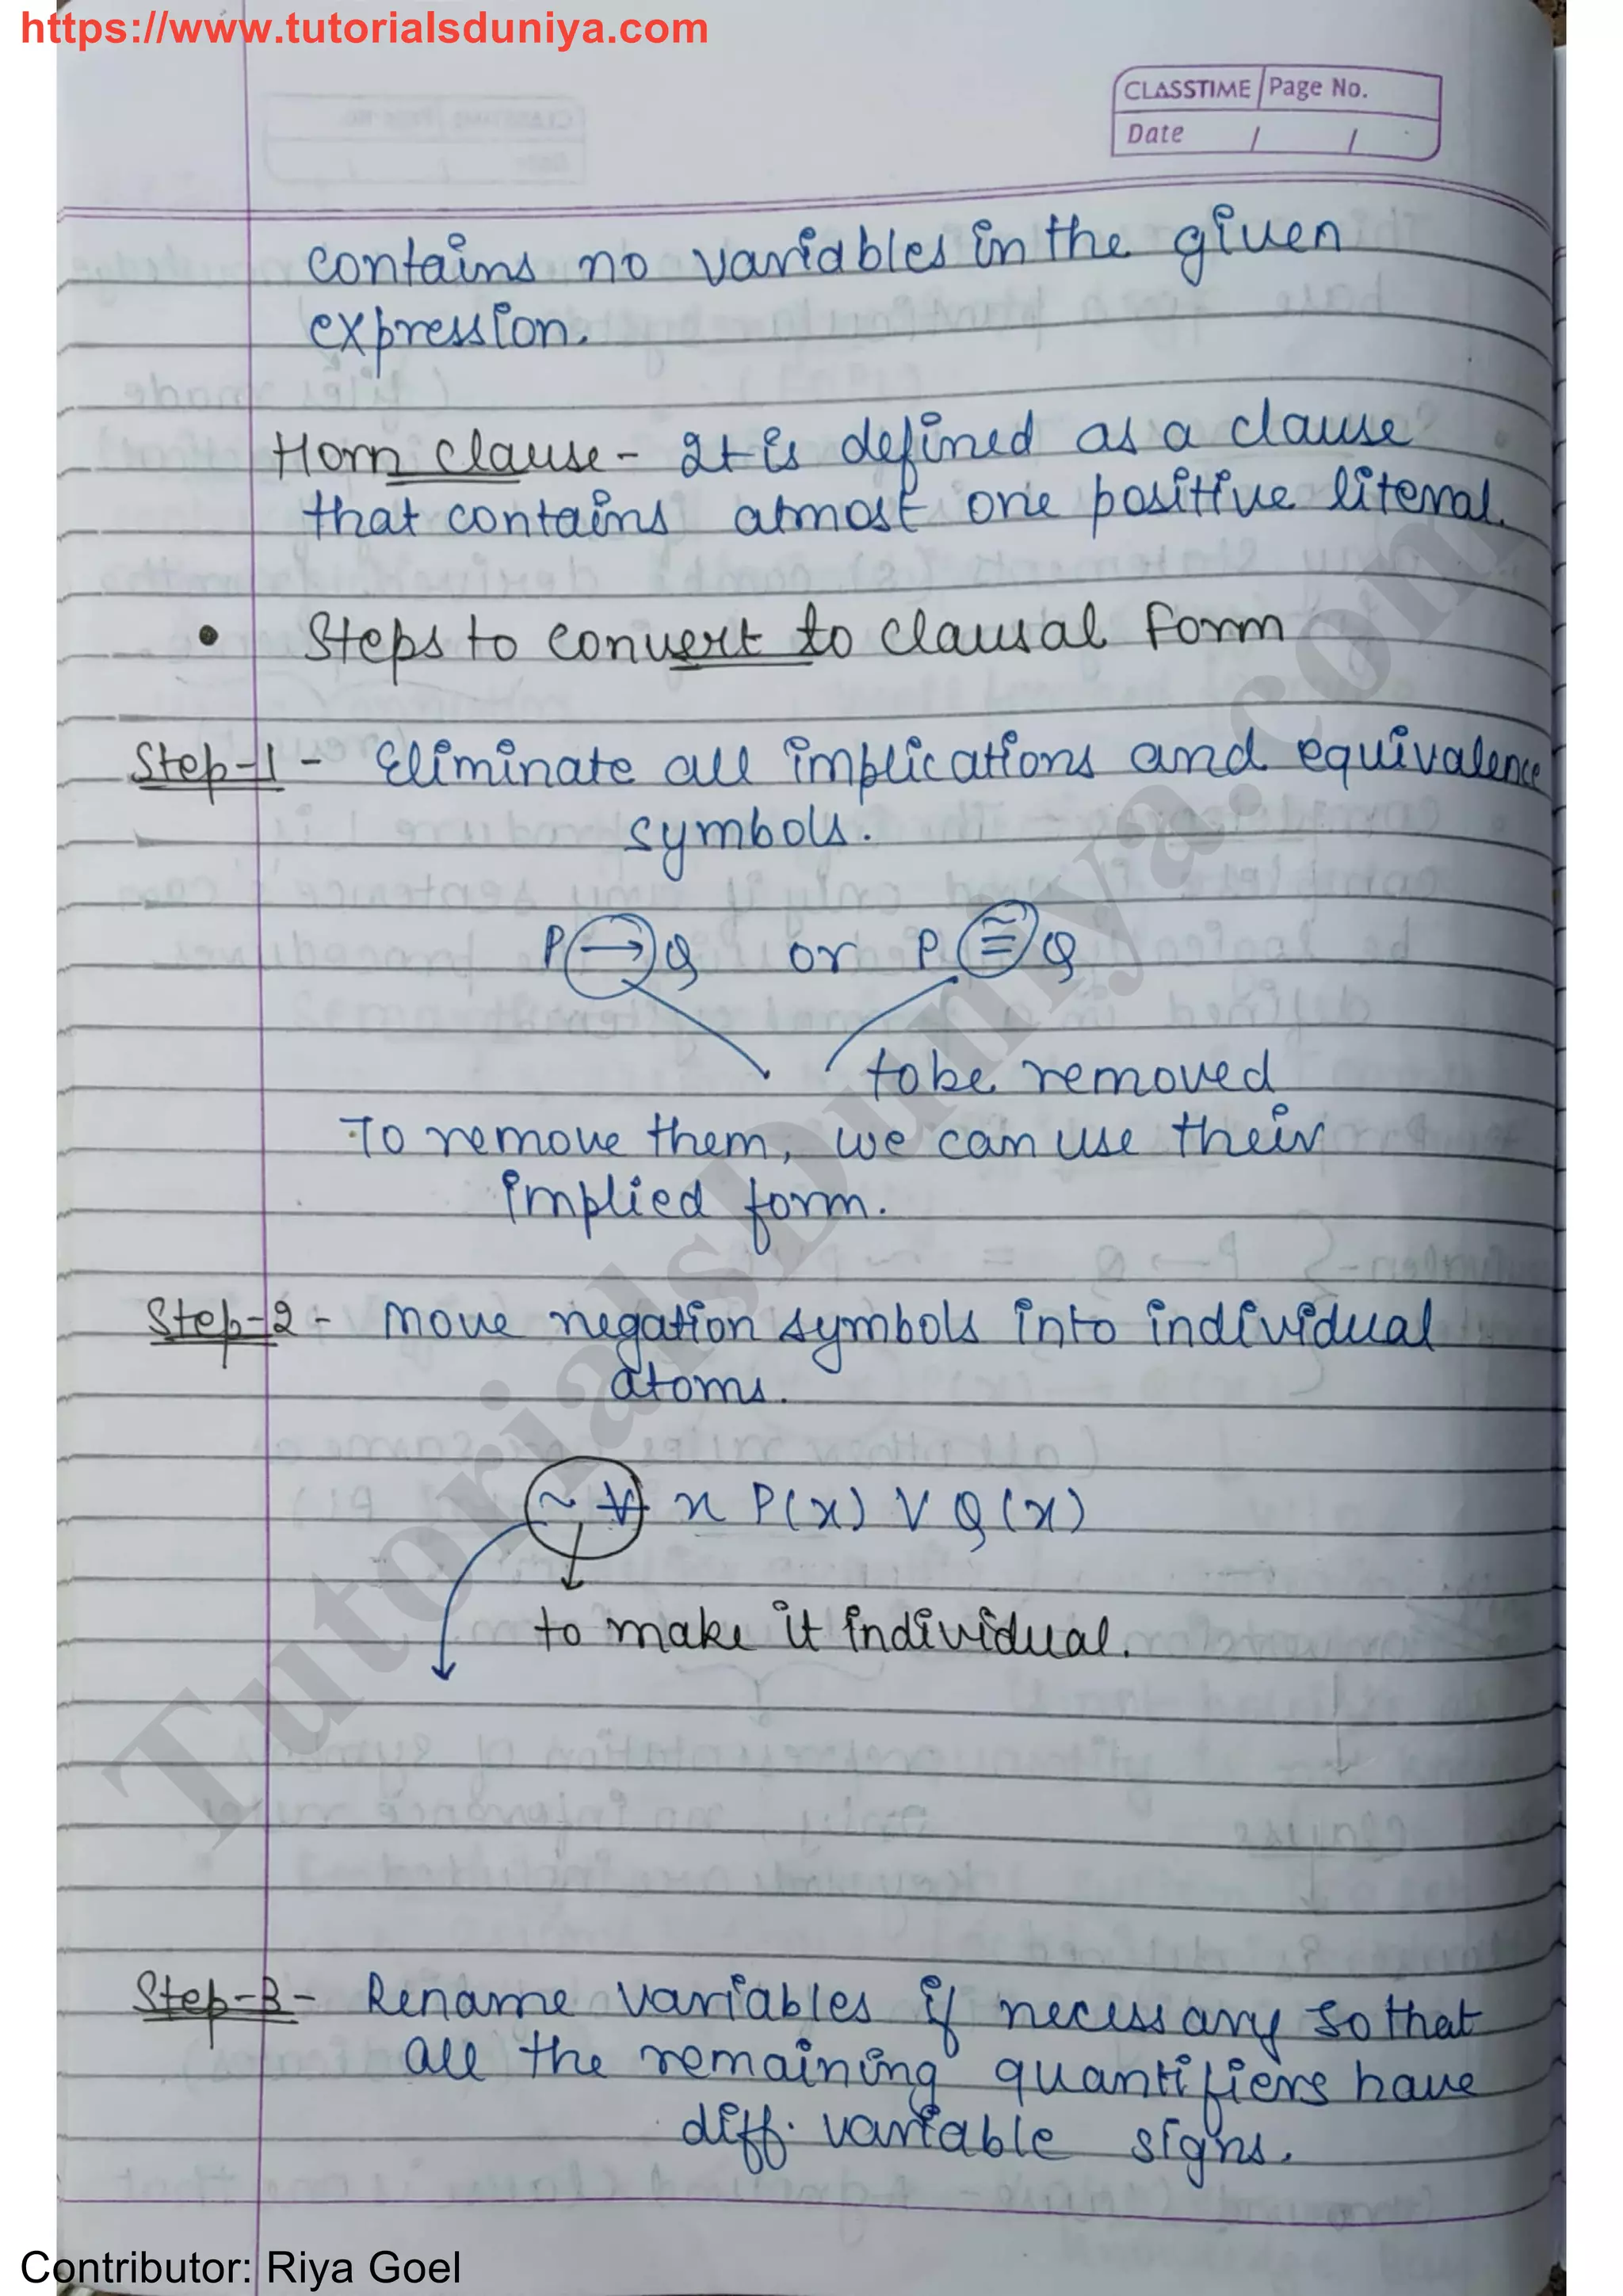 https://www.tutorialsduniya.com
CLASSTIME Page No.
Date / /
contains no variables in the given
expression.
Horn clause - It is defined as a clause
that contains atmost one positive literal.
• Steps to convert to clausal form
Step-1 - Eliminate all implications and equivalence
symbols.
P → Q or P ≅ Q
to be removed
To remove them, we can use their
implied form.
Step-2 - Move negation symbols into individual
atoms.
~ ∀ x P(x) V Q(x)
to make it individual.
Step-3 - Rename variables if necessary so that
all the remaining quantifiers have
diff. variable signs.
TutorialsDuniya.com
Contributor: Riya Goel